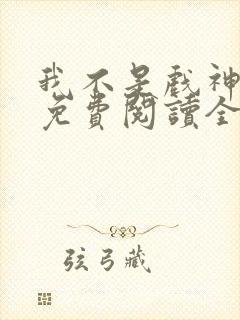 我不是戲神
免費閱讀全
弦弓藏